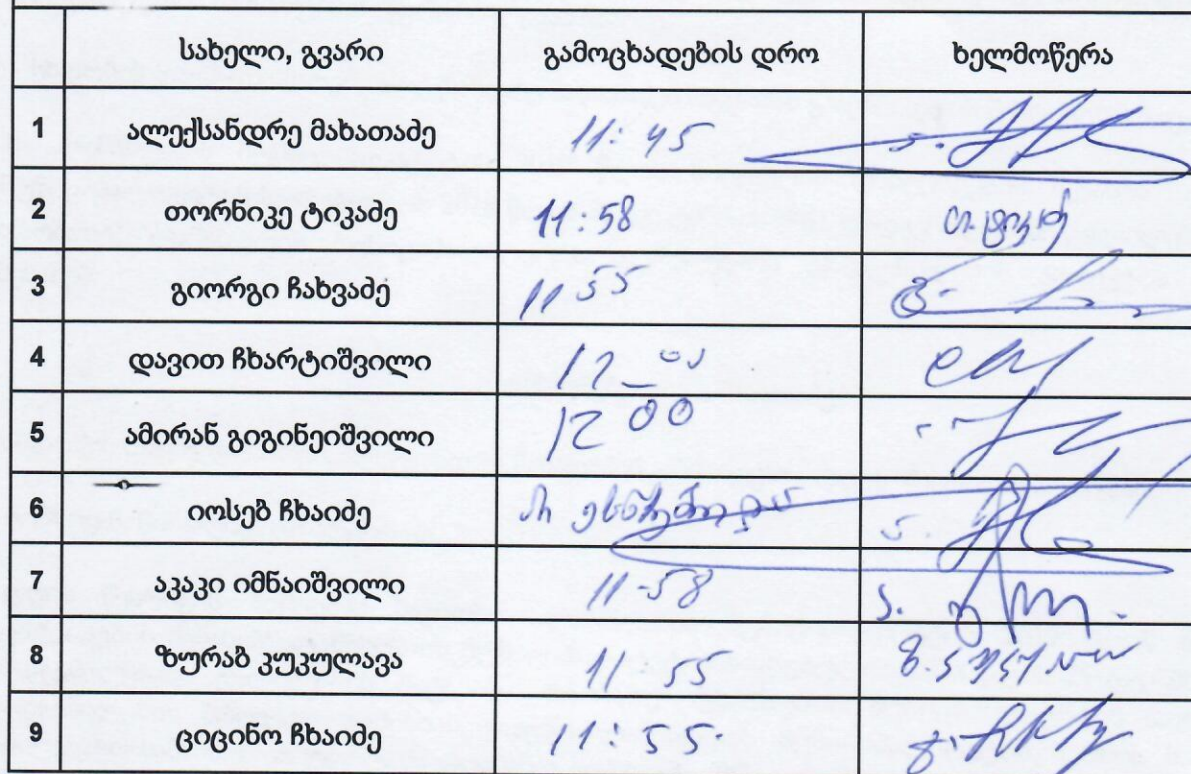 სახელი, გვარი გამოცხადების დრო ხელმოწერა
1 ალექსანდრე მახათაძე 11:45
2 თორნიკე ტიკაძე 11:58
3 გიორგი ჩახვაძე 11 55
4 დავით ჩხარტიშვილი
5 ამირან გიგინეიშვილი 12 00
6 იოსებ ჩხაიძე არ ესწრებოდა
7 აკაკი იმნაიშვილი 11-58
8 ზურაბ კუკულავა 11 55
9 ციცინო ჩხაიძე 11:55.